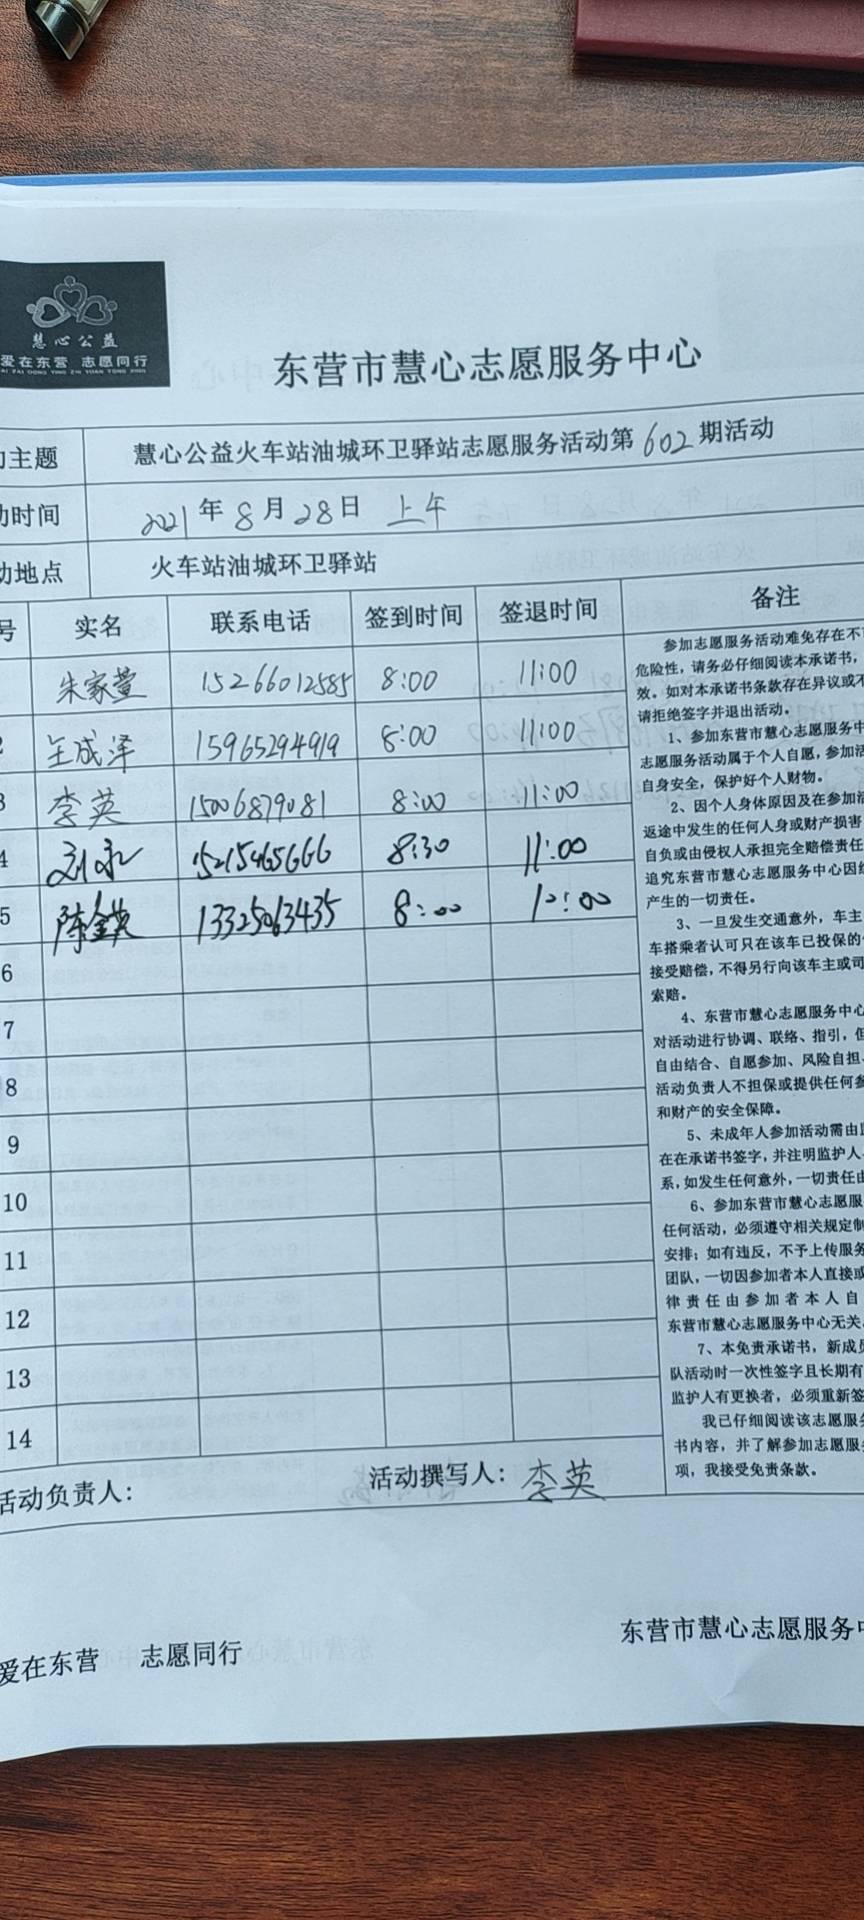 慧心公益
爱在东营 志愿同行
AI ZAI DONG YING ZHI YUAN TONG XING
东营市慧心志愿服务中心
主题 慧心公益火车站油城环卫驿站志愿服务活动第602期活动
动时间 2021年8月28日 上午
动地点 火车站油城环卫驿站
号 实名 联系电话 签到时间 签退时间 备注
朱家萱 15266012585 8:00 11:00
2 王成泽 15965294919 8:00 11:00
3 李英 15006879081 8:00 11:00
4 刘永 15215465666 8:30 11:00
5 陈金英 13325063435 8:00 12:00
6
7
8
9
10
11
12
13
14
参加志愿服务活动难免存在不
危险性，请务必仔细阅读本承诺书，
效。如对本承诺书条款存在异议或不
请拒绝签字并退出活动。
1、参加东营市慧心志愿服务中
志愿服务活动属于个人自愿，参加活
自身安全，保护好个人财物。
2、因个人身体原因及在参加活
返途中发生的任何人身或财产损害
自负或由侵权人承担完全赔偿责任
追究东营市慧心志愿服务中心因
产生的一切责任。
3、一旦发生交通意外，车主
车搭乘者认可只在该车已投保的
接受赔偿，不得另行向该车主或司
索赔。
4、东营市慧心志愿服务中心
对活动进行协调、联络、指引，但
自由结合、自愿参加、风险自担、
活动负责人不担保或提供任何参
和财产的安全保障。
5、未成年人参加活动需由监
在在承诺书签字，并注明监护人
系，如发生任何意外，一切责任由
6、参加东营市慧心志愿服
任何活动，必须遵守相关规定制
安排；如有违反，不予上传服务
团队，一切因参加者本人直接或
律责任由参加者本人自
东营市慧心志愿服务中心无关。
7、本免责承诺书，新成员
队活动时一次性签字且长期有
监护人有更换者，必须重新签
我已仔细阅读该志愿服务
书内容，并了解参加志愿服务
项，我接受免责条款。
活动负责人： 活动撰写人：李英
爱在东营 志愿同行
东营市慧心志愿服务中